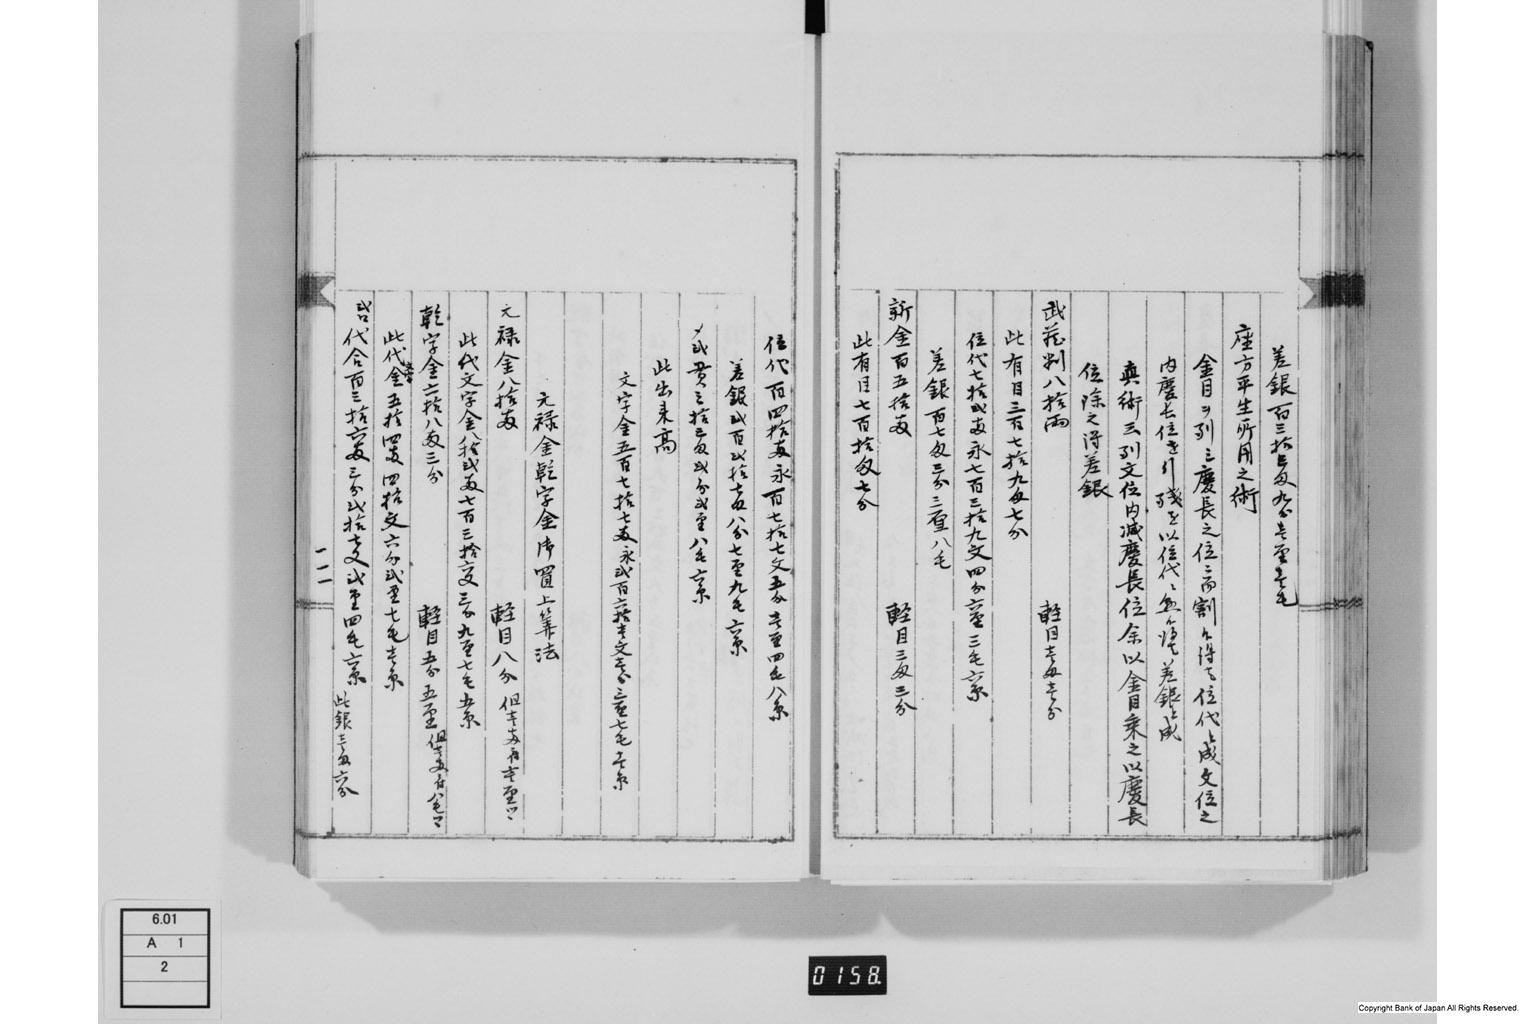 差銀百三拾五匁九分壱厘壱毛
座方平生所用之術
金目ヲ列シ慶長之位ニ而割ヶ得ルヲ位代ト成文位之
内慶長位を引残を以位代ニ乗ヶ得差銀ト成
真術云列文位内減慶長位余以金目乗之以慶長
位除之得差銀
武蔵判八拾両
軽目壱匁壱分
此有目三百七拾九匁七分
位代七拾弐両永七百三拾九文四分六厘三毛六糸
差銀百七匁三分三厘八毛
新金百五拾両
軽目三匁三分
此有目七百拾匁七分
位代百四拾両永百七拾七文五分壱厘四毛八糸
差銀弐百弐拾七匁八分七厘九毛六糸
〆弐貫三拾三匁弐分弐厘八毛六糸
此出来高
文字金五百七拾七両永弐百六拾壱文壱分三厘七毛壱糸
元禄金乾字金御買上算法
元禄金八拾両
軽目八分
但壱両ニ付壱厘ツヽ
此代文字金八拾弐両七百三拾六文三分九厘七毛五糸
乾字金六拾八両三分
軽目五分五厘
但壱両ニ付八毛ツヽ
此代文字金五拾四両四拾文六分弐厘七毛壱糸
合百三拾六両三分弐拾七文弐厘四毛六糸
此銀壱匁六分
6.01
A 1
2
0158.
Copyright Bank of Japan All Rights Reserved.